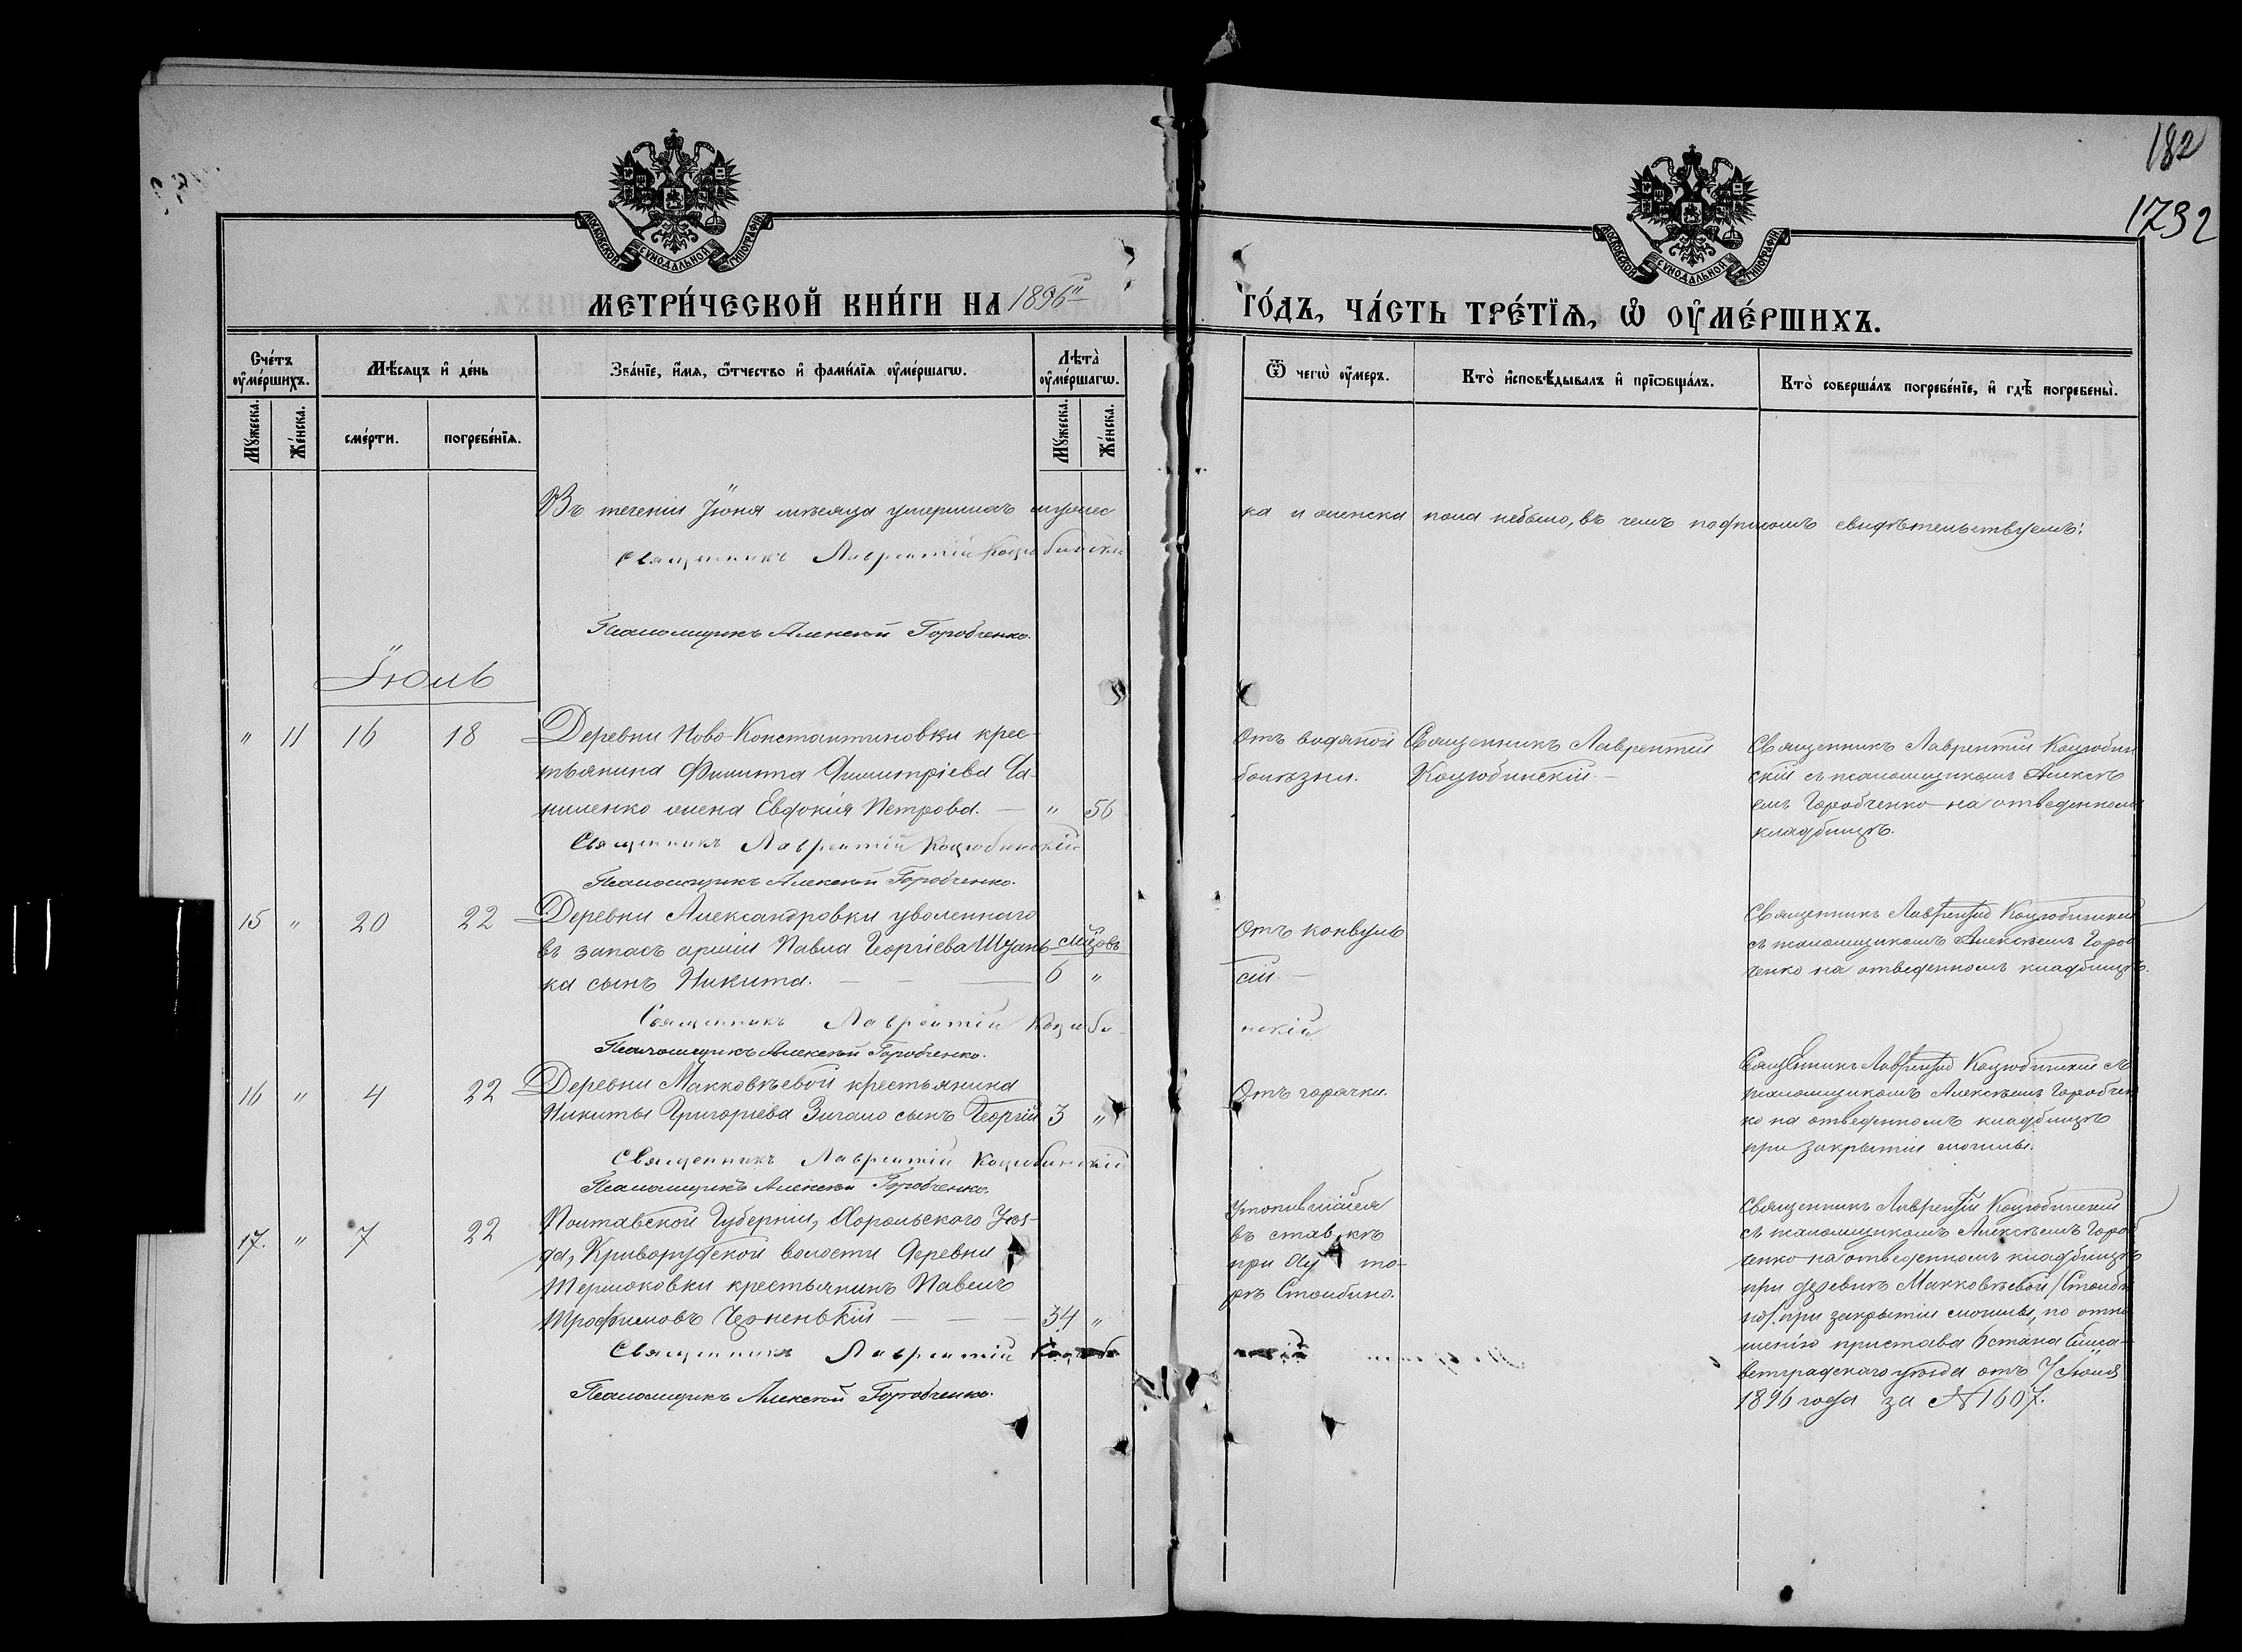 182
1732
МОСКОВСКОЙ СѴНОДАЛЬНОЙ ТИПОГРАФІИ
МОСКОВСКОЙ СѴНОДАЛЬНОЙ ТИПОГРАФІИ
МЕТРИ́ЧЕСКОЙ КНИ́ГИ НА 1896й ГО́ДЪ, ЧА́СТЬ ТРЕ́ТЇѦ, Ѡ҆ ОУ҆МЕ́РШИХЪ.
Сче́тъ оу҆ме́ршихъ.
Мѣ́сяцъ и҆ де́нь
Зва́нїе, и҆́мя, ѻ҆́тчество и҆ фами́лїя оу҆ме́ршагѡ.
Лѣта̀ оу҆ме́ршагѡ.
Ѿ чегѡ̀ оу҆́меръ.
Кто̀ и҆сповѣ́дывалъ и҆ прїѡбща́лъ.
Кто̀ соверша́лъ погребе́нїе, и҆ гдѣ̀ погребены̀.
Мꙋ́жеска.
Же́нска.
сме́рти.
погребе́нїя.
Мꙋ́жеска.
Же́нска.
Въ теченіи Іюня мѣсяца умершихъ мужес
ка и женска пола небыло, въ чемъ подписомъ свидѣтельствуемъ:
Священникъ Лаврентій Коцюбинскій
Псаломщикъ Алексѣй Горобченко.
Іюль
" 11 16 18 Деревни Ново-Константиновки крес-
тьянина Филиппа Димитріева
ниленко жена Евдокія Петрова. — " 56
Священникъ Лаврентій Коцюбинскій
Псаломщикъ Алексѣй Горобченко.
Отъ водяной
болѣзни.
Священникъ Лаврентій
Коцюбинскій. —
Священникъ Лаврентій Коцюбин
скій съ псаломщикомъ Алексѣ
емъ Горобченко на отведенномъ
кладбищѣ.
15 " 20 22 Деревни Александровки уволеннаго
въ запасъ арміи Павла Георгіева
ка сынъ Никита. — — — 6 "
Священникъ Лаврентій Коцюби-
нскій
Псаломщикъ Алексѣй Горобченко.
Отъ конвуль
сій. —
Священникъ Лаврентій Коцюбинскій
съ псаломщикомъ Алексѣемъ Гороб
ченко на отведенномъ кладбищѣ.
16 " 4 22 Деревни Макковѣевой крестьянина
Никиты Григоріева сынъ Георгій 3 "
Священникъ Лаврентій Коцюбинскій
Псаломщикъ Алексѣй Горобченко.
Отъ горячки.
Священникъ Лаврентій Коцюбинскій съ
псаломщикомъ Алексѣемъ Горобчен
ко на отведенномъ кладбищѣ
при закрытіи могилы.
17. " 7 22 Полтавской Губерніи, Хорольского Уѣз-
да, Криворудской волости Деревни
крестьянинъ Павелъ
Трофимовъ Черненькій — — — 34 "
Священникъ Лаврентій
Псаломщикъ Алексѣй Горобченко.
Утопившійся
въ ставкѣ
при ху то-
рѣ Столбино.
Священникъ Лаврентій Коцюбинскій
съ псаломщикомъ Алексѣемъ Гороб
ченко на отведенномъ кладбищѣ
при деревнѣ Макковѣевой /Столби
но/. при закрытіи могилы, по отно
шенію пристава 6 стана Елиса-
ветградскаго уѣзда отъ 7 Іюля
1896 года за № 1607.